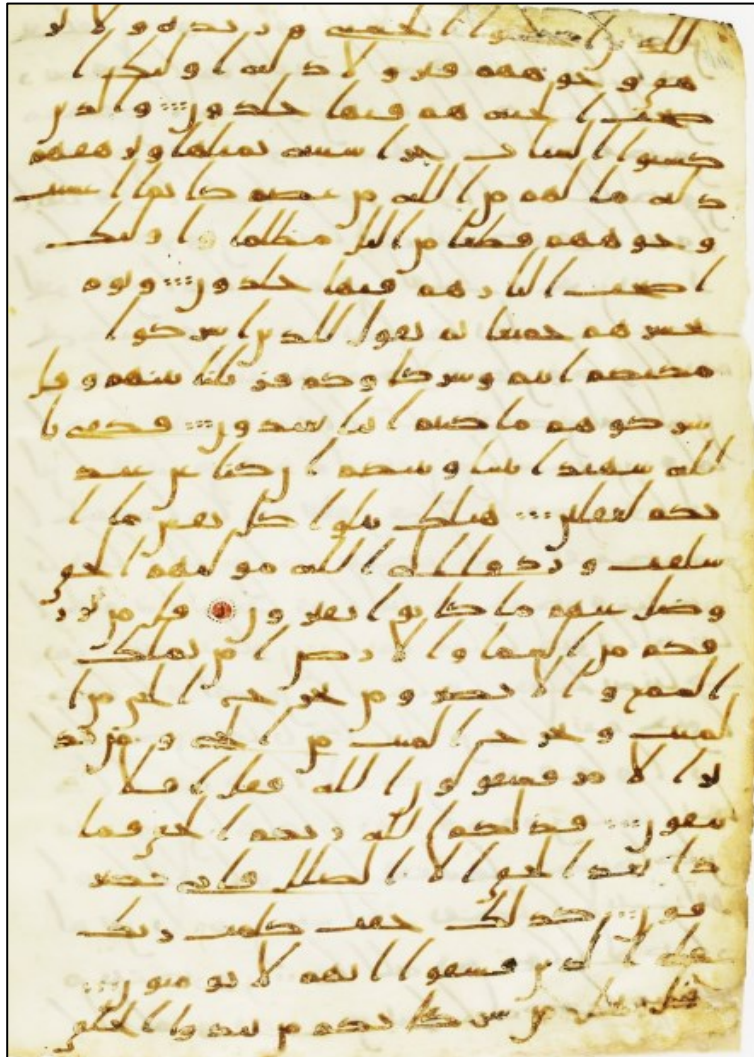 للذين احسنوا الحسنى وزيده ولا ير
هق وجوههم قتر ولا ذله اوليك ا
صحب الجنه هم فيها خلدون والذين
كسبوا السيات جزا سييه بمثلها وترهقهم
ذله ما لهم من الله من عصم كانما اغشيت
وجوههم قطعا من اليل مظلما اوليك
اصحب النار هم فيها خلدون ويوم
نحشرهم جميعا ثم نقول للذين اشركوا
مكنكم انتم وشركاوكم فزيلنا بينهم وقا
ل شركوهم ما كنتم ايانا تعبدون فكفى با
لله شهيدا بيننا وبينكم ان كنا عن عبد
تكم لغفلين هنلك تبلوا كل نفس ما ا
سلفت وردوا الى الله موليهم الحق
وضل عنهم ما كانوا يفترون قل من يرز
قكم من السما والارض امن يملك
السمع والابصر ومن يخرج الحي من ا
لميت ويخرج الميت من الحي ومن يد
بر الامر فسيقولون الله فقل افلا
تتقون فذلكم الله ربكم الحق فما
ذا بعد الحق الا الضلل فانى تصر
فون كذلك حقت كلمت ربك
على الذين فسقوا انهم لا يومنون
قل هل من شركايكم من يبدوا الخلق